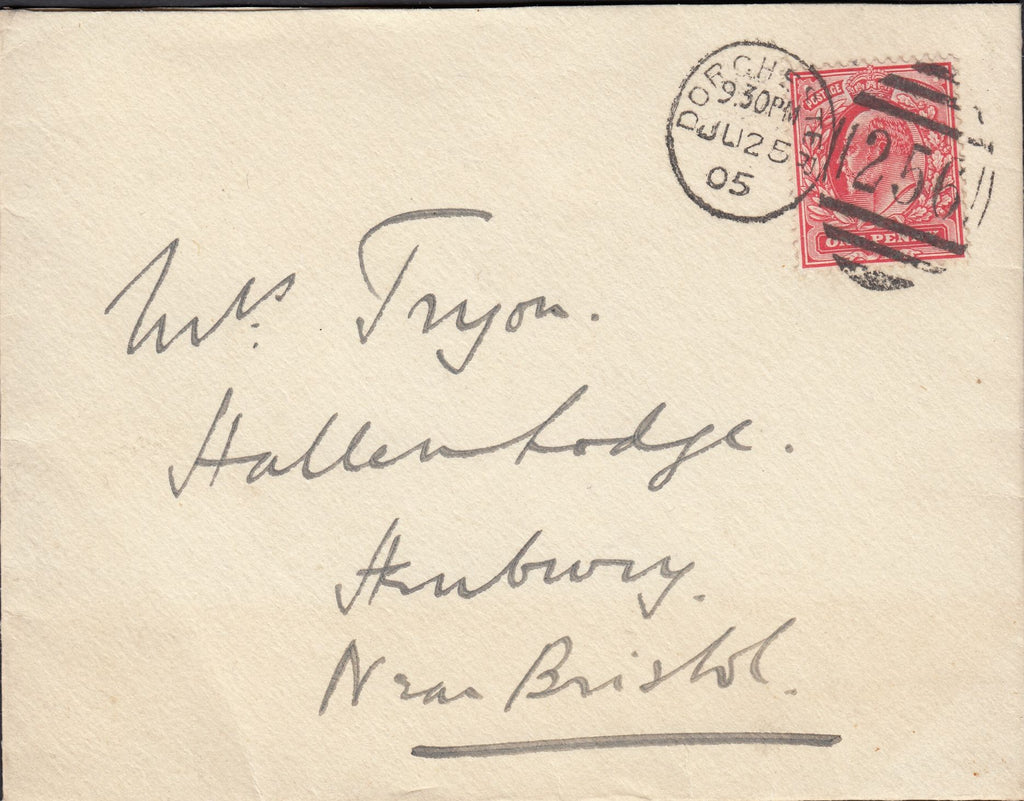 DORCHESTER
9.30PM
JU 25
05
POSTAGE
256
ONE PENNY
Mrs. Tryon.
Hallen Lodge.
Henbury.
Near Bristol.